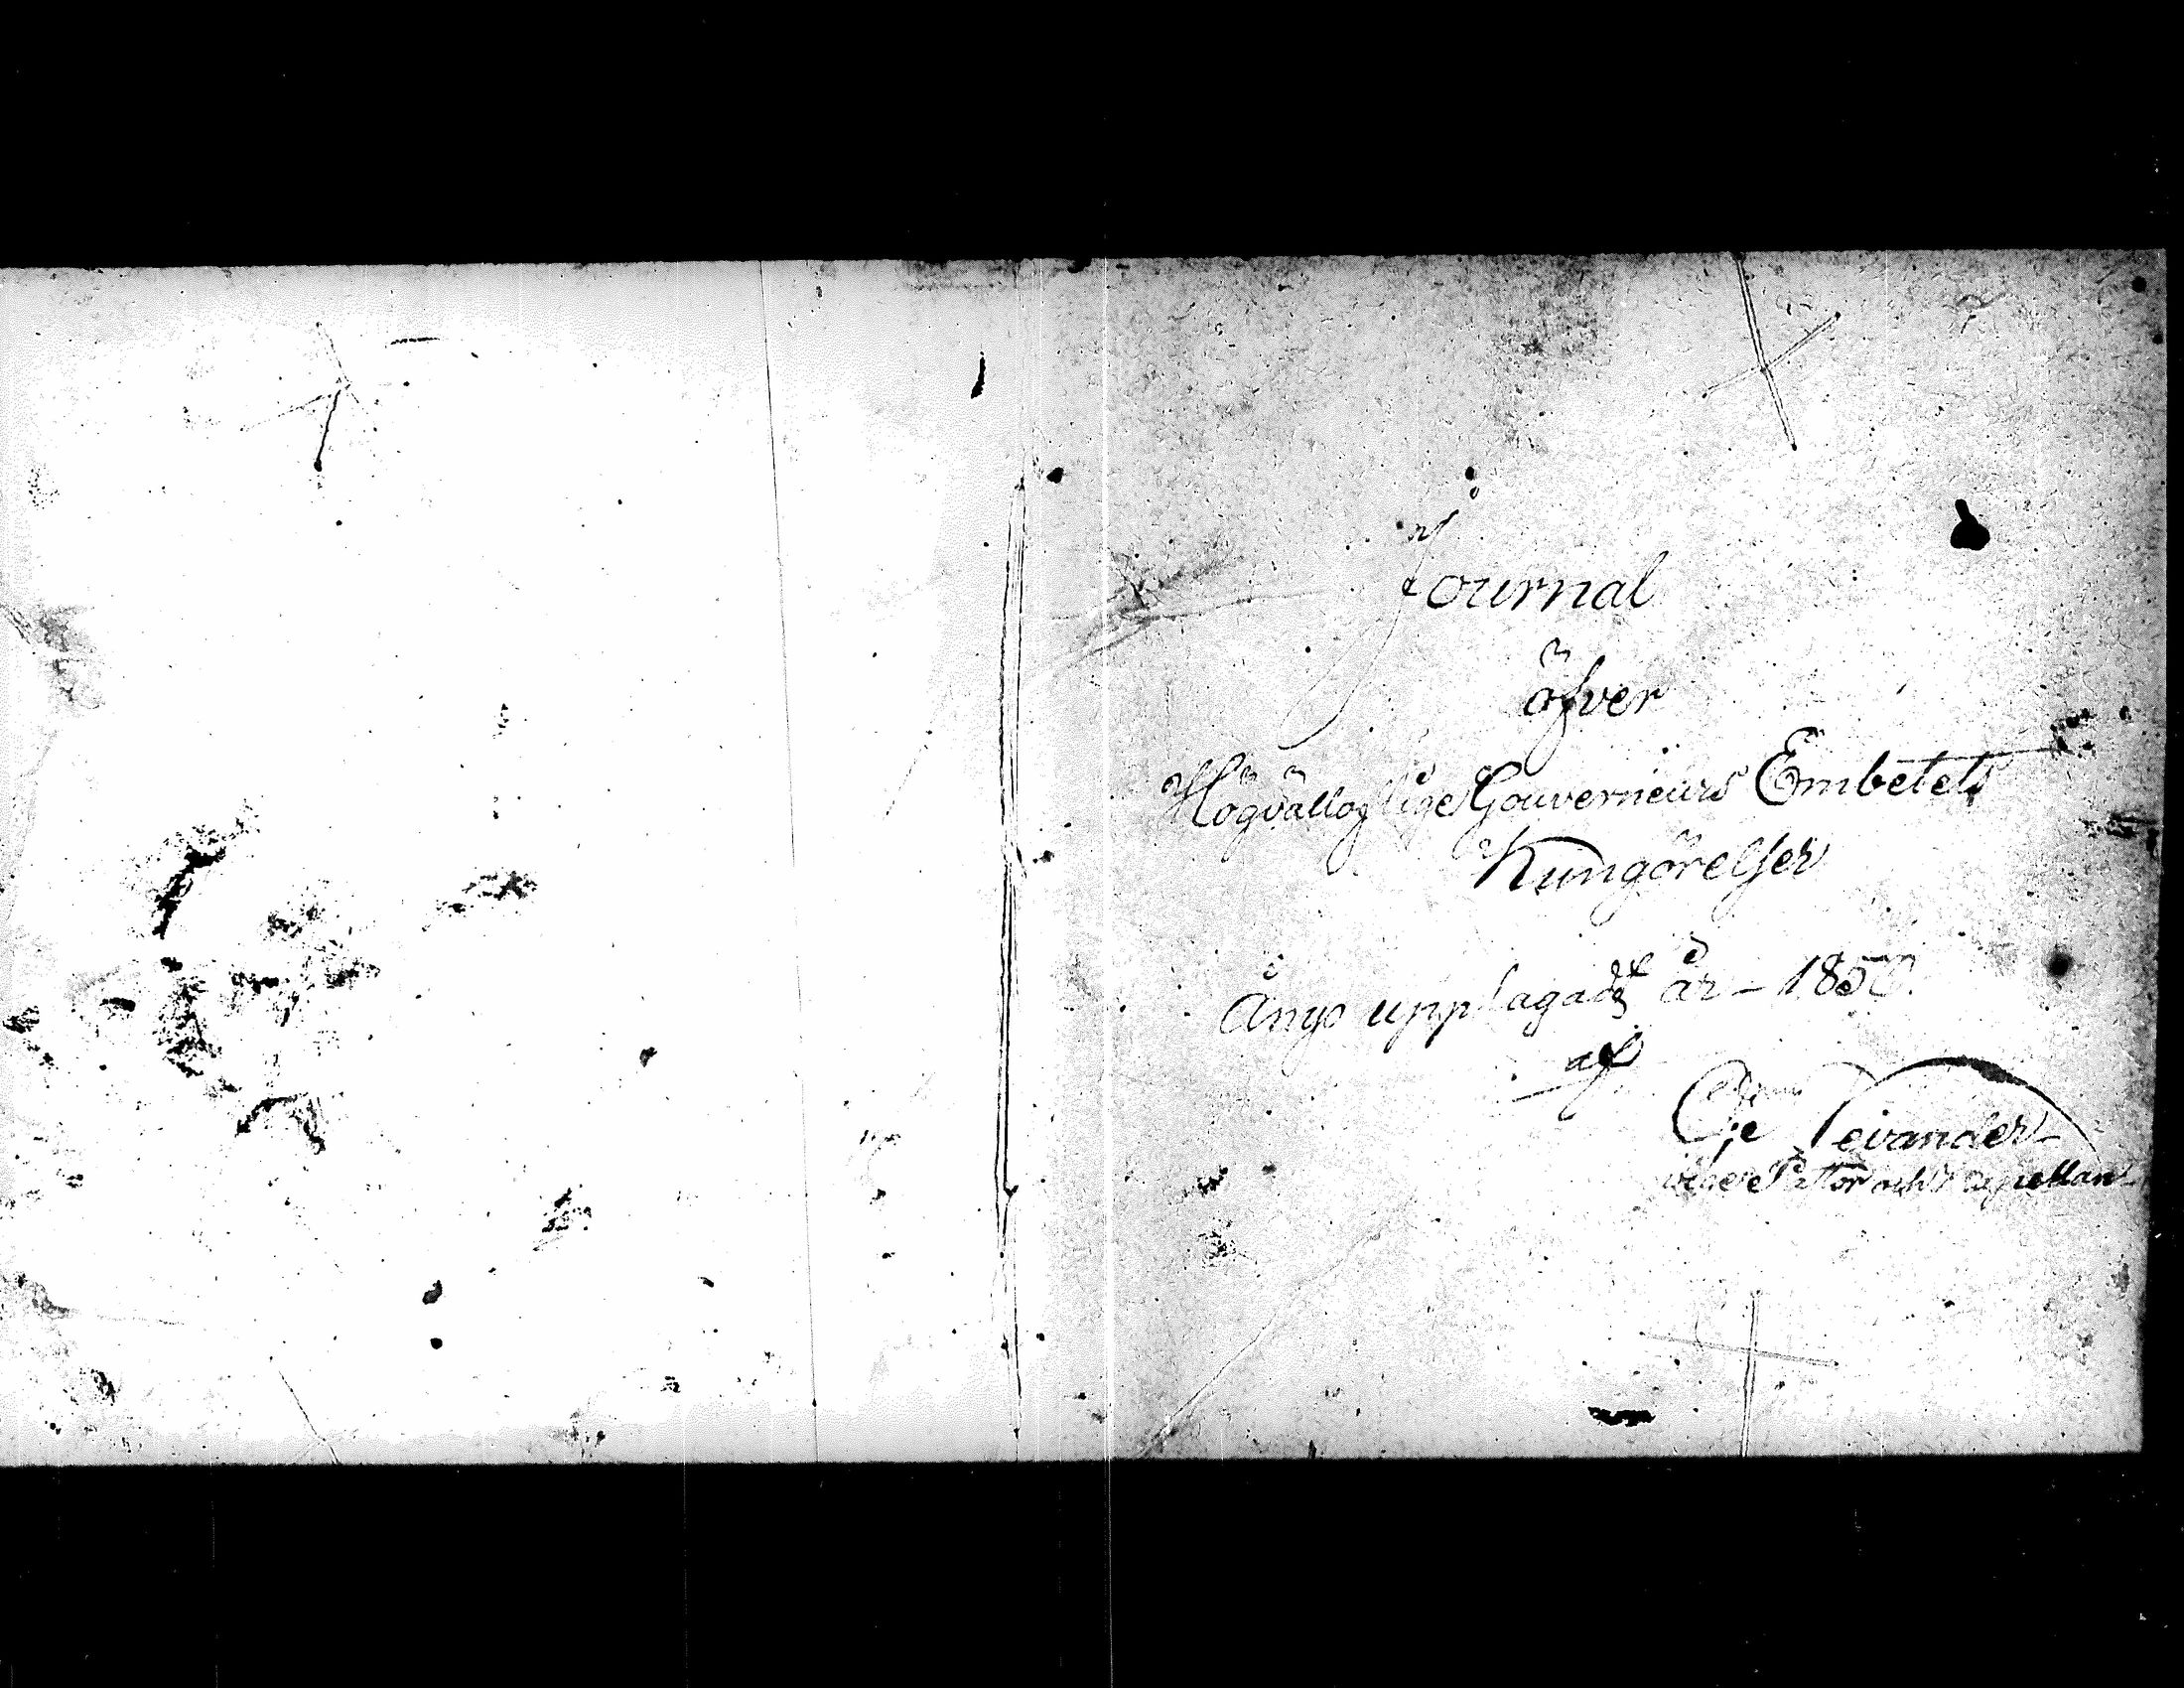 Journal
öfver
Högvällofliga Gouverneurs Embetets
Kungörelser
Ånyo upplagadt år - 1850.
af
Tevander
vice Pastor och Capellan